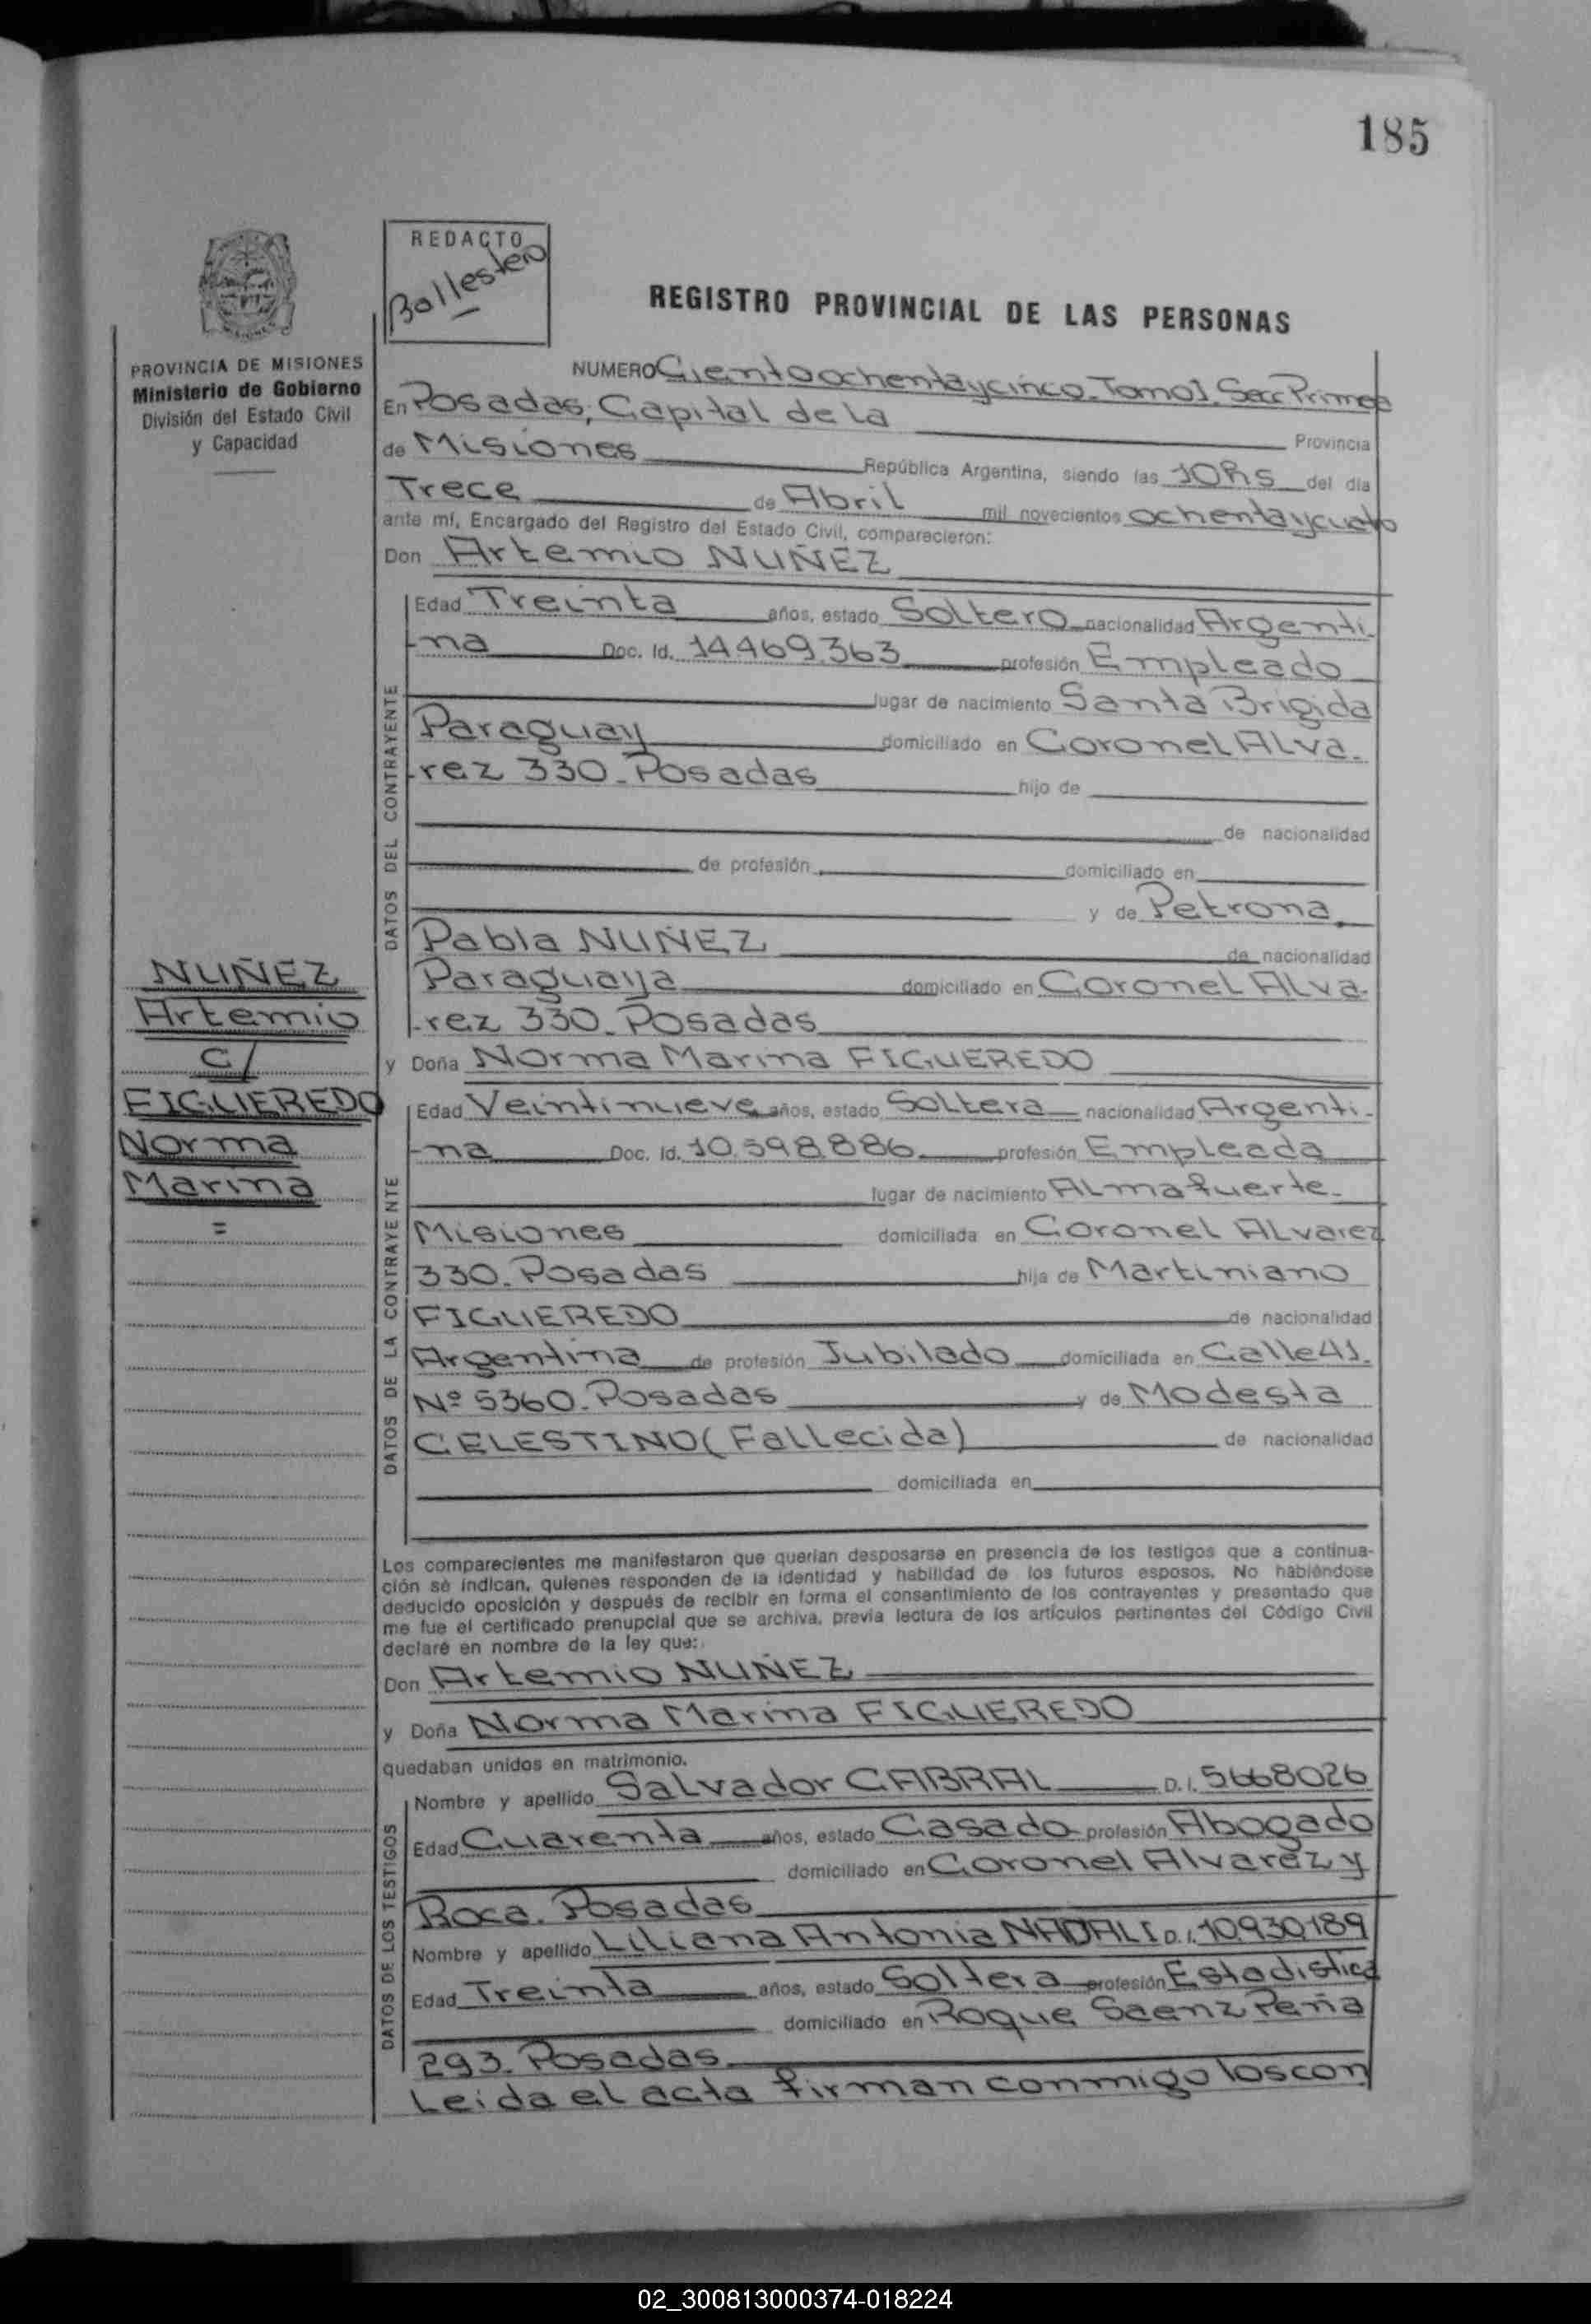 185
REDACTO
Ballestero
REGISTRO PROVINCIAL DE LAS PERSONAS
PROVINCIA DE MISIONES
Ministerio de Gobierno
División del Estado Civil
y Capacidad
NUMERO Cientoochentaycinco. Tomo 1. Secc Primera
En Posadas, Capital de La Provincia
de Misiones República Argentina, siendo las 10hs del día
Trece de Abril mil novecientos ochentaycuatro
ante mí, Encargado del Registro del Estado Civil, comparecieron:
Don Artemio NUÑEZ
DATOS DEL CONTRAYENTE
Edad Treinta años, estado Soltero nacionalidad Argenti-
-na Doc. Id. 14469.363 profesión Empleado
lugar de nacimiento Santa Brigida
Paraguay domiciliado en Coronel ALva-
-rez 330-Posadas hijo de
de nacionalidad
de profesión domiciliado en
y de Petrona
Pabla NUÑEZ de nacionalidad
Paraguaya domiciliado en Coronel ALva-
-rez 330-Posadas
NUÑEZ
Artemio
C/
FIGUEREDO
Norma
Marina
=
y Doña Norma Marina FIGUEREDO
DATOS DE LA CONTRAYENTE
Edad Veintinueve años, estado Soltera nacionalidad Argenti-
-na Doc. Id. 10.598.886 profesión Empleada
lugar de nacimiento ALmafuerte-
Misiones domiciliada en Coronel ALvarez
330-Posadas hija de Martiniano
FIGUEREDO de nacionalidad
Argentina de profesión Jubilado domiciliada en Calle 41.
Nº 5360-Posadas y de Modesta
CELESTINO (Fallecida) de nacionalidad
domiciliada en
Los comparecientes me manifestaron que querían desposarse en presencia de los testigos que a continua-
ción se indican, quienes responden de la identidad y habilidad de los futuros esposos. No habiéndose
deducido oposición y después de recibir en forma el consentimiento de los contrayentes y presentado que
me fue el certificado prenupcial que se archiva, previa lectura de los artículos pertinentes del Código Civil
declaré en nombre de la ley que:
Don Artemio NUÑEZ
y Doña Norma Marina FIGUEREDO
quedaban unidos en matrimonio.
DATOS DE LOS TESTIGOS
Nombre y apellido Salvador CABRAL D. I. 5668026
Edad Cuarenta años, estado Casado profesión Abogado
domiciliado en Coronel Alvarez y
Roca. Posadas
Nombre y apellido Liliana Antonia NADALI D. I. 10.930.189
Edad Treinta años, estado Soltera profesión Estadistica
domiciliado en Roque Saenz Peña
293. Posadas
Leida el acta firman conmigo los con
02_300813000374-018224